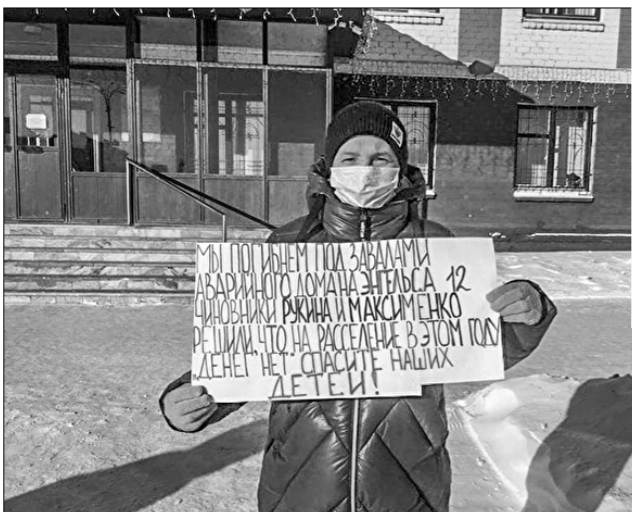 МЫ ПОГИБНЕМ ПОД ЗАВАЛАМИ
АВАРИЙНОГО ДОМА НА ЭНГЕЛЬСА 12
ЧИНОВНИКИ РУКИНА И МАКСИМЕНКО
РЕШИЛИ, ЧТО НА РАССЕЛЕНИЕ В ЭТОМ ГОДУ
"ДЕНЕГ НЕТ" СПАСИТЕ НАШИХ
ДЕТЕЙ!